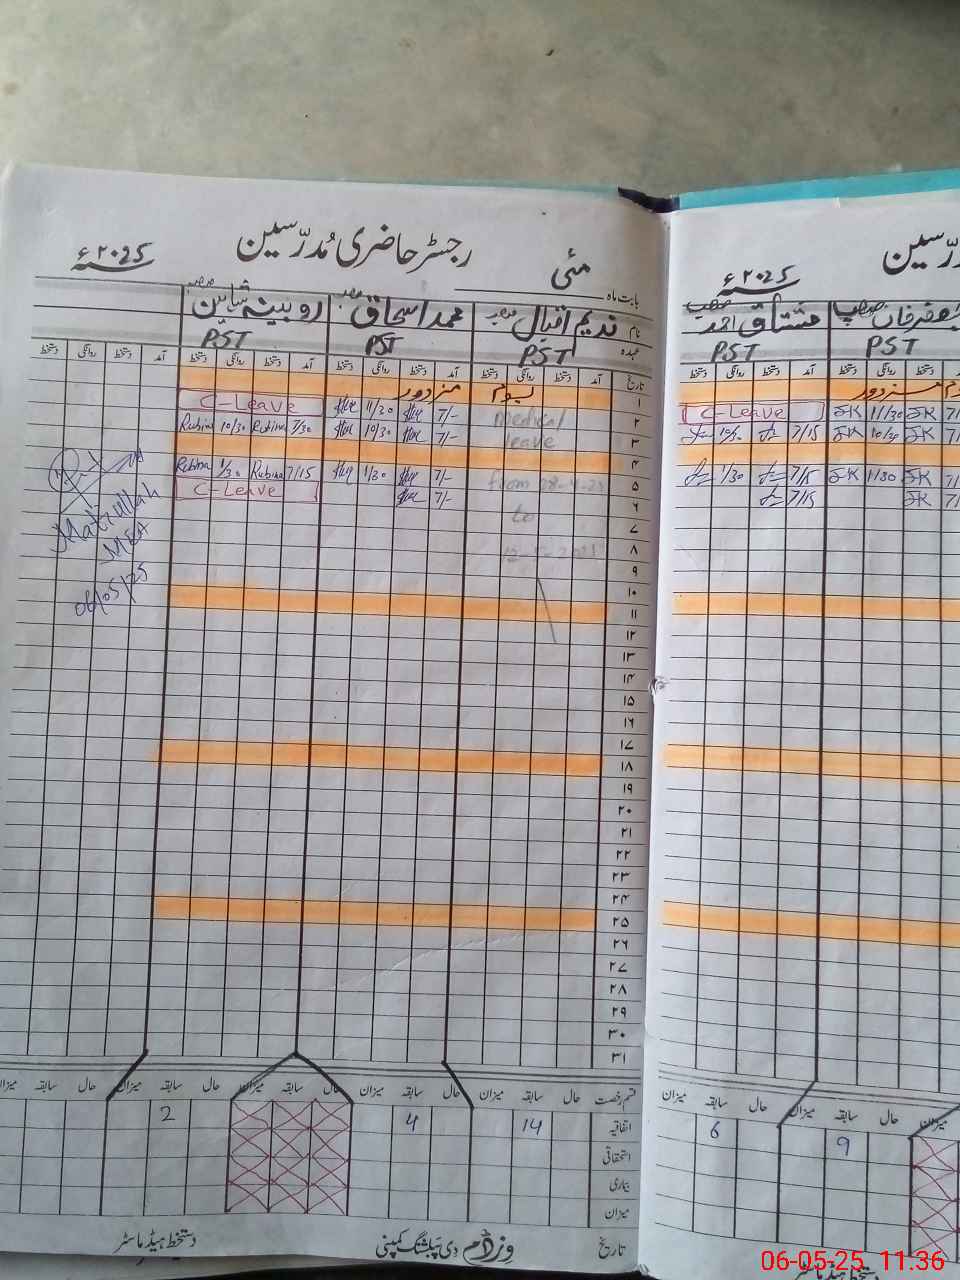 رجسٹر حاضری مُدرّسین
بابت ماہ مئی ۲۰۲۵ء
نام ندیم اقبال صاحب محمد اسحاق صاحب روبینہ شاہین صاحبہ
عہدہ PST PST PST
تاریخ آمد دستخط روانگی دستخط آمد دستخط روانگی دستخط آمد دستخط روانگی دستخط آمد دستخط روانگی دستخط
۱ یوم مزدور
۲ Medical 7/- 11/30 C-Leave
۳ leave 7/- 10/30 7/30 Rubina 10/30 Rubina
۴
۵ from 28-4-25 7/- 1/30 7/15 Rubina 1/30 Rubina
۶ to 7/- C-Leave
۷
۸
۹
۱۰
۱۱
۱۲
۱۳
۱۴
۱۵
۱۶
۱۷
۱۸
۱۹
۲۰
۲۱
۲۲
۲۳
۲۴
۲۵
۲۶
۲۷
۲۸
۲۹
۳۰
۳۱
Matiullah
MEA
06/05/25
قسم رخصت حال سابقہ میزان حال سابقہ میزان حال سابقہ میزان حال سابقہ میزان
اتفاقیہ 14 4 2
استحقاقی
بیماری
میزان
تاریخ وزڈم دی پبلشنگ کمپنی دستخط ہیڈ ماسٹر
رّسین
۲۰۲۵ء
جعفر خان صاحب مشتاق احمد صاحب
PST PST
دستخط روانگی دستخط آمد دستخط روانگی دستخط
مزدور
7/ 11/30 C-Leave
7/ 10/30 7/15 10/30
7/ 1/30 7/15 1/30
7/ 7/15
میزان حال سابقہ میزان حال سابقہ میزان
9 6
دستخط ہیڈ ماسٹر
06-05-25 11:36